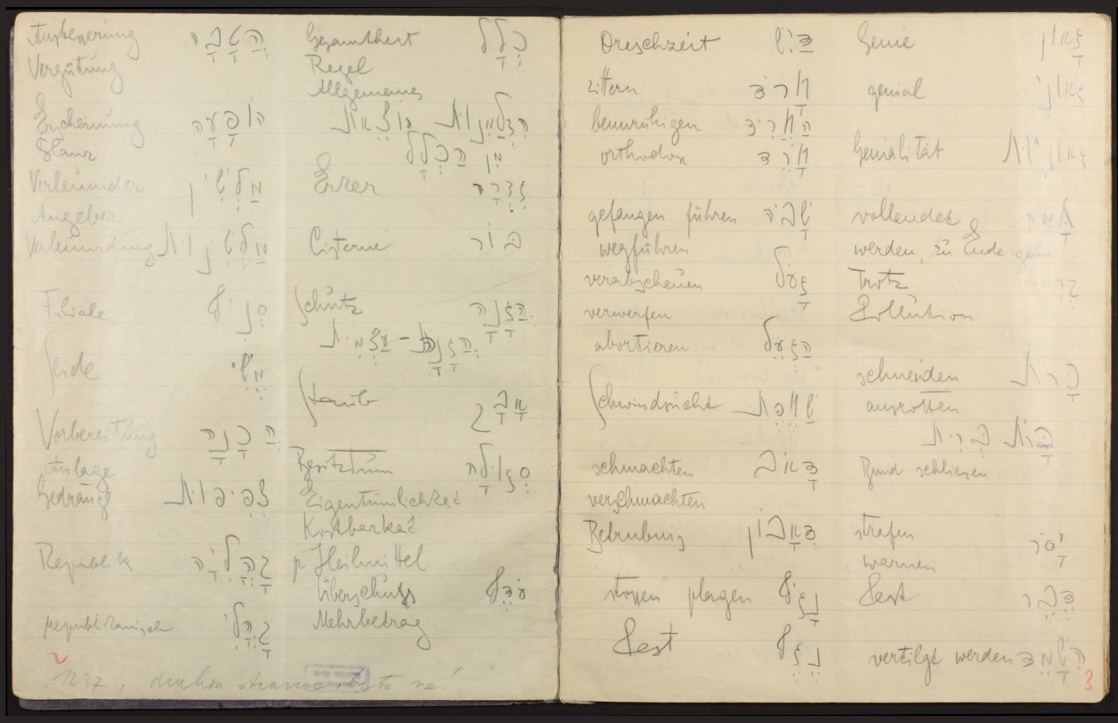 Ausbesserung הֲטָבָה
Vergütung
Erscheinung הוֹפָעָה
Glanz
Verleumder מַלְשִׁין
Angeber
Verleumdung
Filiale סְנִיף
Seide מֶשִׁי
Vorbereitung הֲכָנָה
Anlage
Gedräng צְפִיפוּת
Republik קְהִלִיָה
republikanisch קְהִלִי
2
Gesamtheit כְּלָל
Regel
Allgemeines
הִצְטַמְנוּת מוֹצָאת
מִן הַכְּלָל
Erker גְזֻזְרָה
Cisterne בּוֹר
Schutz הֲגָנָה
הֲגָנָה – עַצְמִית
Staub אָבָק
Besitztum סְגוּלָה
Eigentümlichkeit
Kostbarkeit
Heilmittel
Überschuss עֹדֶף
Mehrbetrag
Dreschzeit דַיִשׁ
zittern חָרַד
beunruhigen הֶחֱרִיד
orthodox חָרֵד
gefangen führen שָׁבָה
wegführen
verabscheuen גָעַל
verwerfen
abortieren הִגְעַל
Schwindsucht שַׁחֶפֶת
schmachten דָאוֹב
verschmachten
Betrubnis דְאָבוֹן
stossen plagen נָגַף
Pest נֶגֶף
Genie גָאוֹן
genial גאוני
Genialität גְאוֹנִיוּת
vollendet
werden, zu Ende gehn
Trotz
Pollution
schneiden כָּרַת
ausrotten
כָּרַת בְּרִית
Bund schliesen
strafen יָסֹר
warnen
Pest דֶבֶר
vertilgt werden הִשָׁמֵד
3